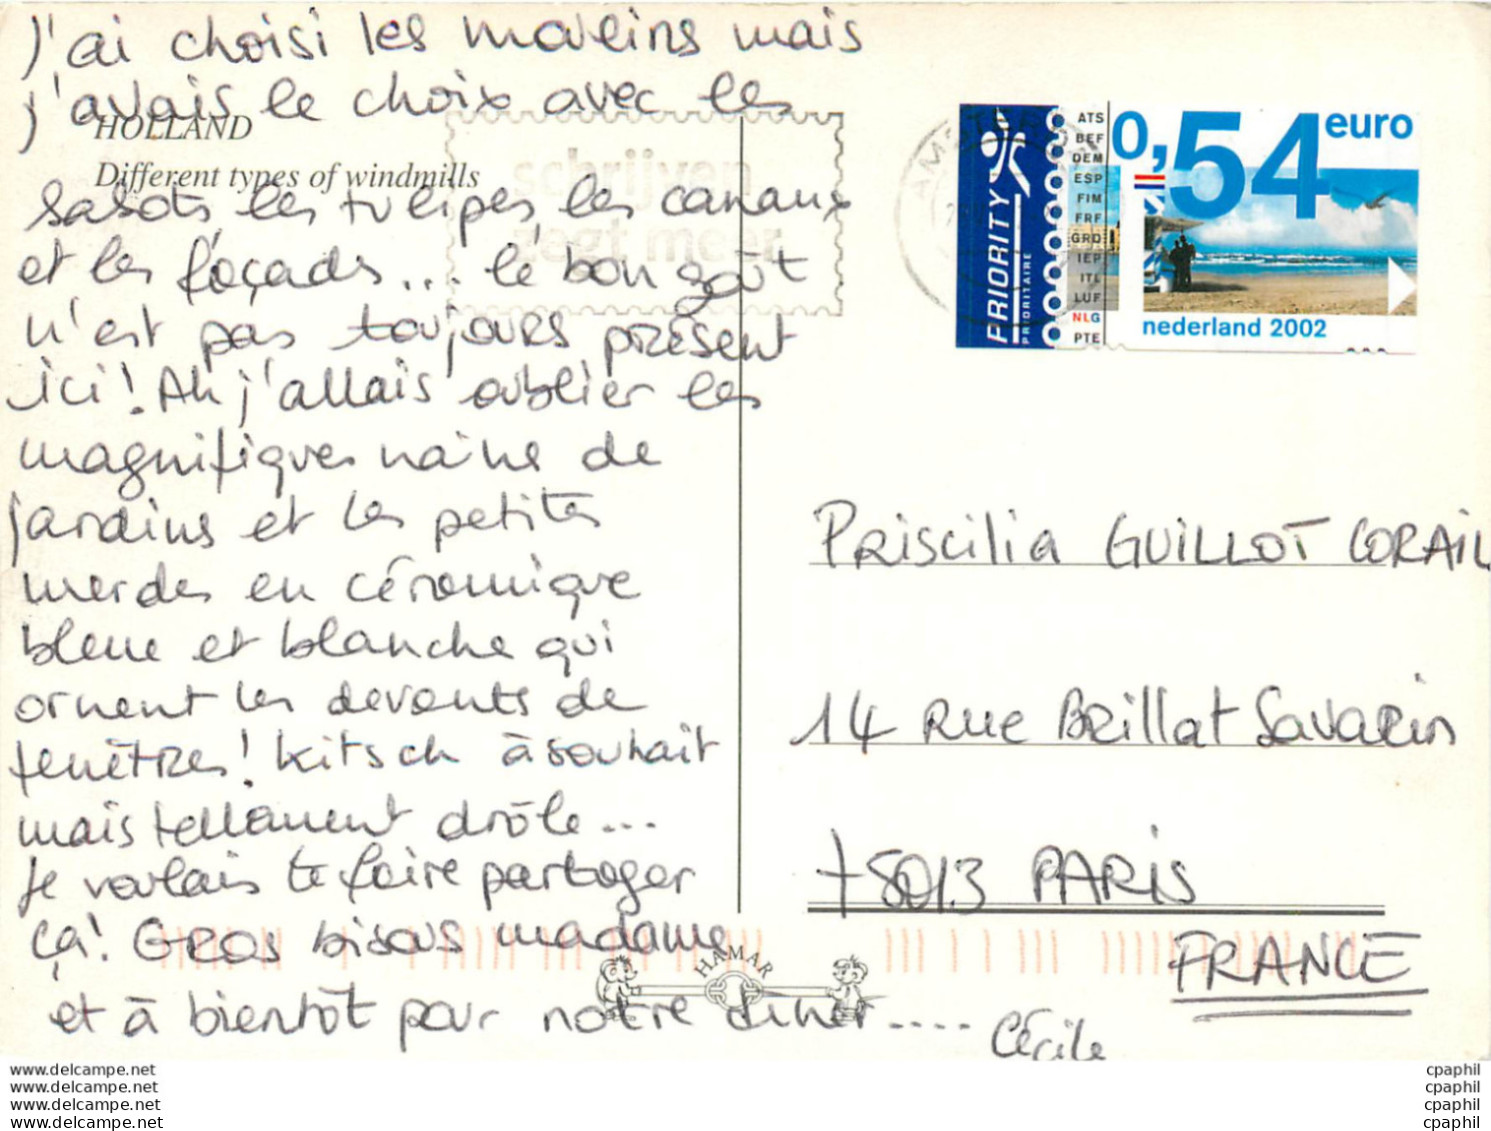 J'ai choisi les moulins mais
j'avais le choix avec les
HOLLAND
Different types of windmills
sabots les tulipes les canaux
et les façades... le bon goût
n'est pas toujours présent
ici! Ah j'allais oublier les
magnifiques nains de
jardins et les petites
merdes en céramique
bleue et blanche qui
ornent les devants de
fenêtres! Kitsch à souhait
mais tellement drôle...
Je voulais te faire partager
ça! GROS bisous madame
et à bientôt pour notre dîner....
Cécile
HAMAR
schrijven
zegt meer
AMSTERDAM
PRIORITY
PRIORITAIRE
ATS
BEF
DEM
ESP
FIM
FRF
GRD
IEP
ITL
LUF
NLG
PTE
0,54 euro
nederland 2002
Priscilia GUILLOT CORAIL
14 Rue Brillat Savarin
75013 PARIS
FRANCE
www.delcampe.net
www.delcampe.net
www.delcampe.net
www.delcampe.net
cpaphil
cpaphil
cpaphil
cpaphil